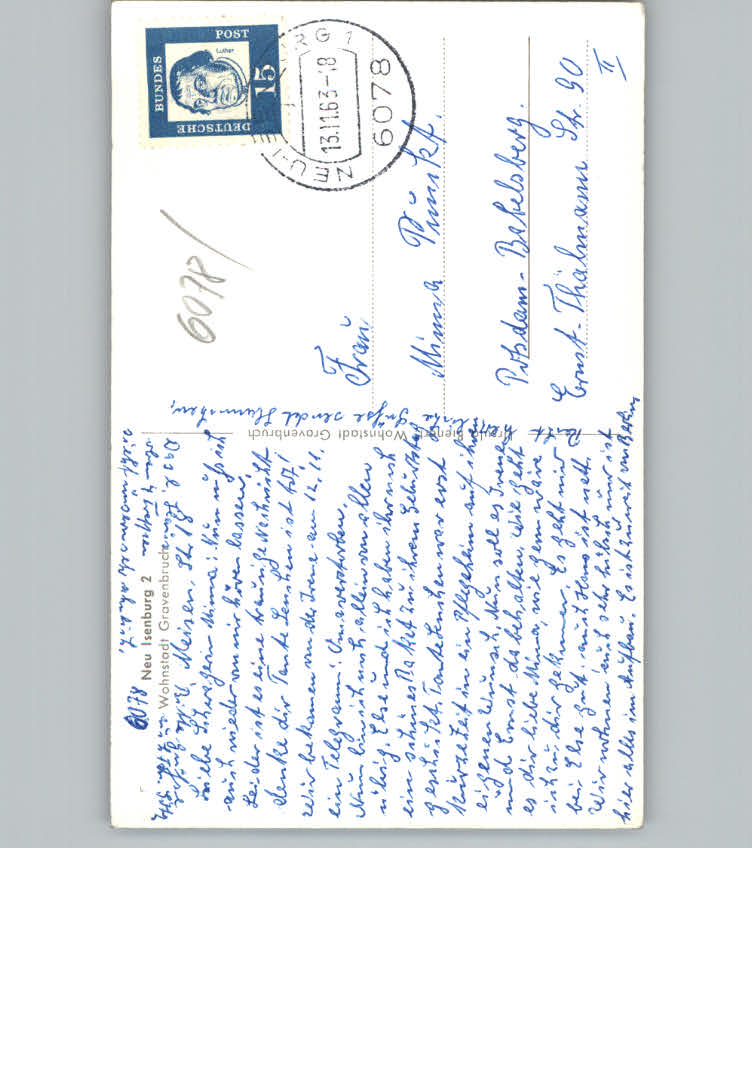 6078 Neu Isenburg 2
Wohnstadt Gravenbruch
liebe Schwägerin Minna! Nun muß ich
auch wieder von mir hören lassen,
Leider ist es eine traurige Nachricht
denke dir Tante Lenchen ist tot!
Wir bekamen von der Irene am 12. 11.
ein Telegramm: Oma verstorben.
Nun bin ich noch allein von allen
übrig. Else und ich haben ihr noch
ein schönes Paket zu ihrem Geburtstag
geschickt. Tante Lenchen war erst
kurze Zeit in ein Pflegeheim auf ihren
eigenen Wunsch. Nun soll es Irene
und Ernst da behalten. Wie geht
es dir liebe Minna, wie gern wäre
ich zu dir gekommen. Es geht mir
bei Else gut. auch Hans ist nett
Wir wohnen auch sehr hübsch nur ist
hier alles im Aufbau. Es ist zu weit von Berlin
Recht herzliche Grüße sendet
Ursula Wohnstadt Gravenbruch
DEUTSCHE BUNDES POST
Luther
15
NEU-ISENBURG 1
13.11.63-18
6078
6078
Frau
Minna
Potsdam-Babelsberg.
Ernst-Thälmann Str. 90
II